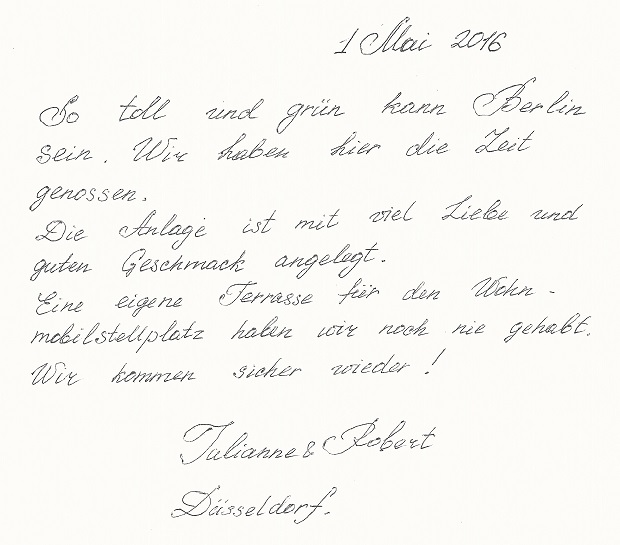 1 Mai 2016
So toll und grün kann Berlin
sein. Wir haben hier die Zeit
genossen.
Die Anlage ist mit viel Liebe und
guten Geschmack angelegt.
Eine eigene Terrasse für den Wohn-
mobilstellplatz haben wir noch nie gehabt.
Wir kommen sicher wieder!
Julianne & Robert
Düsseldorf.